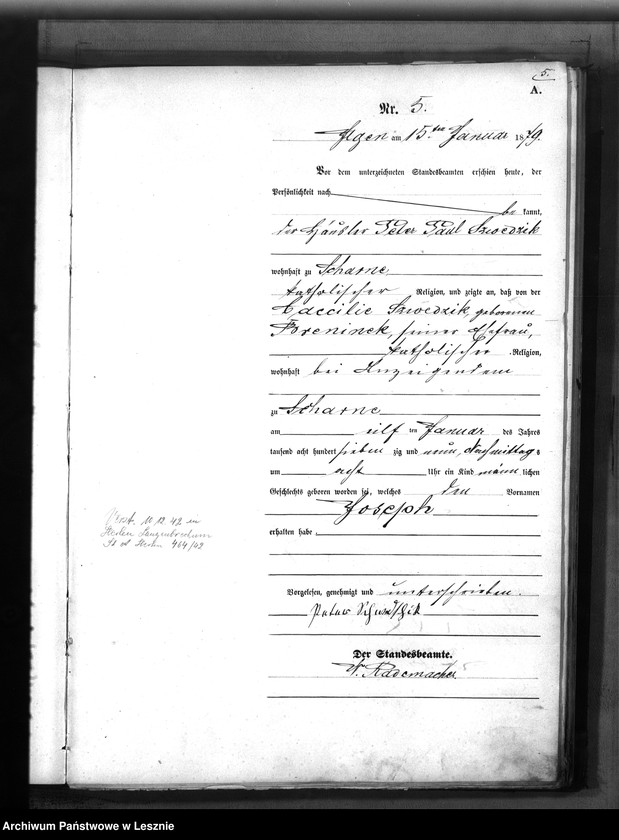 5.
A.
Nr. 5.
Ilgen am 15.ten Januar 1879.
Vor dem unterzeichneten Standesbeamten erschien heute, der
Persönlichkeit nach
be kannt,
der Häusler Peter Paul Szwedzik
wohnhaft zu Scharne
katholischer Religion, und zeigte an, daß von der
Caecilie Szwedzik, geborenen
, seiner Ehefrau,
katholischer Religion,
wohnhaft bei Anzeigendem
zu Scharne
am eilf ten Januar des Jahres
tausend acht hundert sieben zig und neun, Nachmittags
um acht Uhr ein Kind männ lichen
Geschlechts geboren worden sei, welches den Vornamen
Joseph
erhalten habe.
Vorgelesen, genehmigt und unterschrieben.
Peter
Der Standesbeamte.
Rademacher
12. 42 in
464/42
Archiwum Państwowe w Lesznie